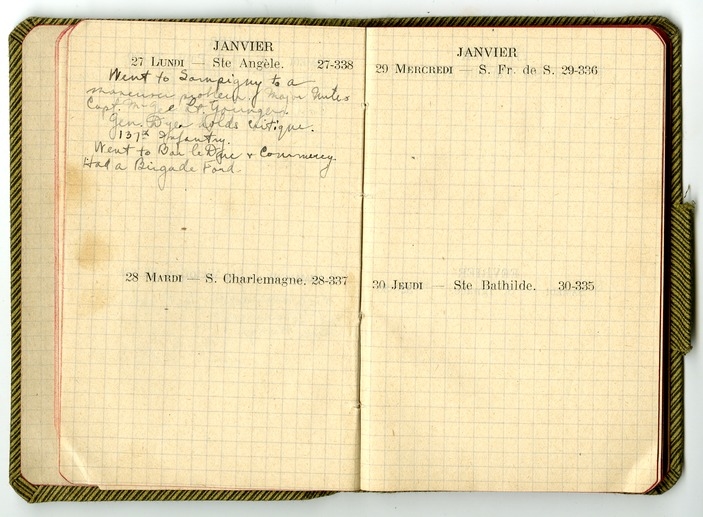 JANVIER
27 LUNDI — Ste Angèle. 27-338
Went to Sampigny to a
maneuver problem. Major
Capt. McGee Lt Younger.
Gen. Dyer holds critique.
137th Infantry.
Went to Bar le Duc & Commercy.
Had a Brigade Ford
28 MARDI — S. Charlemagne. 28-337
JANVIER
29 MERCREDI — S. Fr. de S. 29-336
30 JEUDI — Ste Bathilde. 30-335